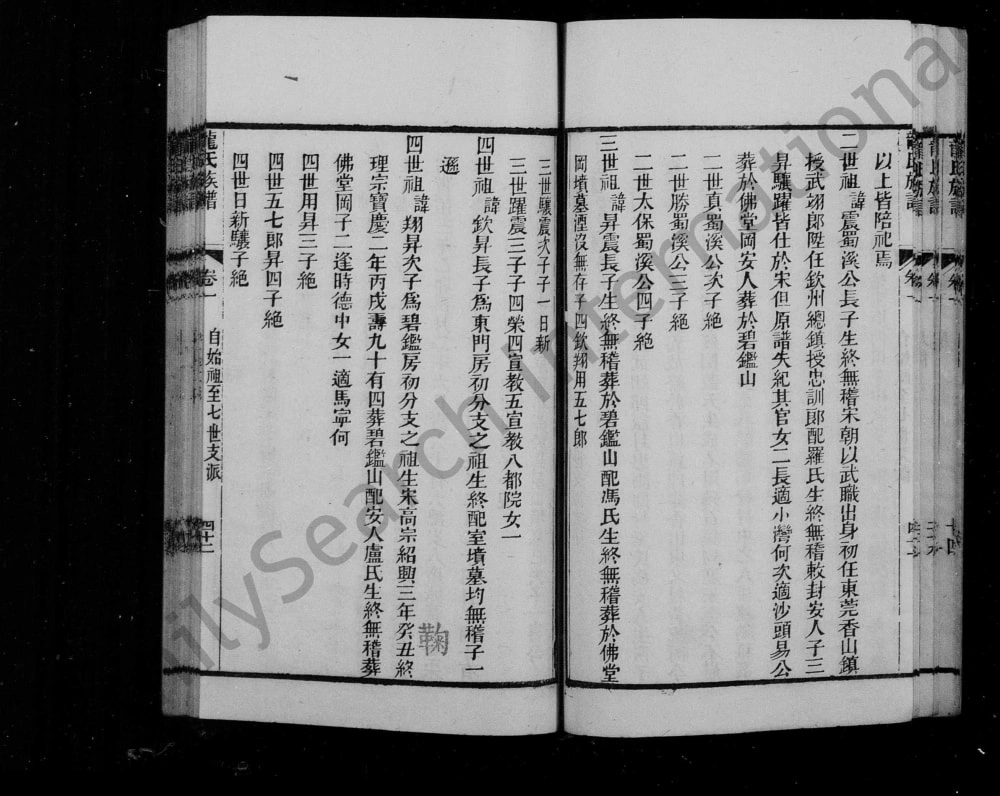 以上皆陪祀焉
二世祖諱震蜀溪公長子生終無稽宋朝以武職出身初任東莞香山鎮
授武翊郎陞任欽州總鎮授忠訓郎配羅氏生終無稽敕封安人子三
昇驤躍皆仕於宋但原譜失紀其官女二長適小灣何次適沙頭易公
葬於佛堂岡安人葬於碧鑑山
二世真蜀溪公次子絶
二世勝蜀溪公三子絶
二世太保蜀溪公四子絶
三世祖諱昇震長子生終無稽葬於碧鑑山配馮氏生終無稽葬於佛堂
岡墳墓湮沒無存子四欽翔用五七郎
三世驤震次子子一日新
三世躍震三子子四榮四宣教五宣教八都院女一
四世祖諱欽昇長子為東門房初分支之祖生終配室墳墓均無稽子一
遜
四世祖諱翔昇次子為碧鑑房初分支之祖生宋高宗紹興三年癸丑終
理宗寶慶二年丙戌壽九十有四葬碧鑑山配安人盧氏生終無稽葬
佛堂岡子二逢時德中女一適馬寧何
四世用昇三子絶
四世五七郎昇四子絶
四世日新驤子絶
龍氏族譜 卷一 自始祖至七世支派 四十二
鞠
ilySearch International